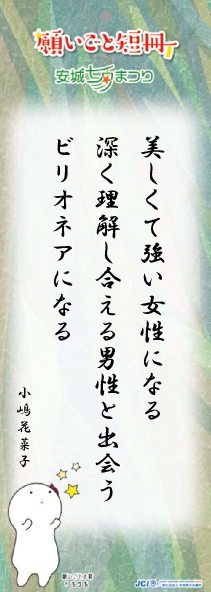 願いごと短冊
安城七夕まつり
美しくて強い女性になる
深く理解し合える男性と出会う
ビリオネアになる
小嶋花菜子
JCI